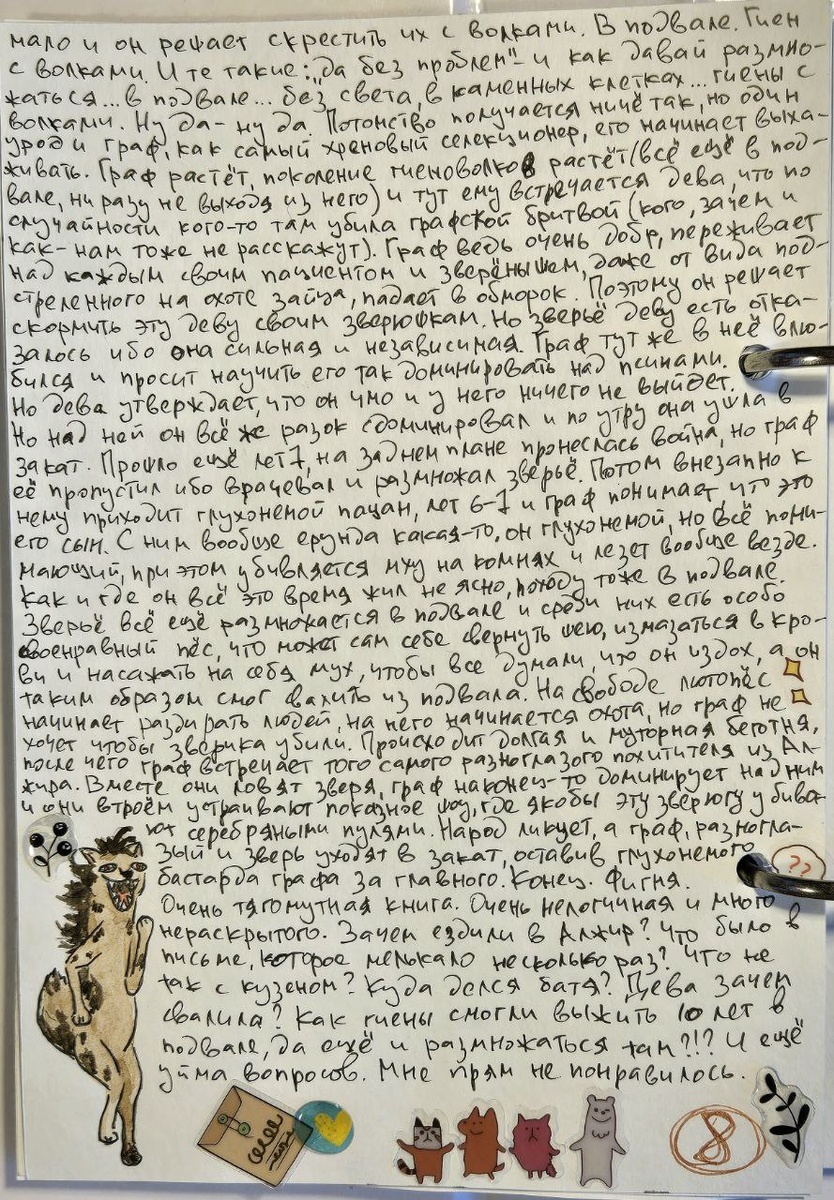 мало и он решает скрестить их с волками. В подвале. Гиен
с волками. И те такие: "да без проблем" - и как давай размно-
жаться... в подвале... без света, в каменных клетках... гиены с
волками. Ну да - ну да. Потомство получается ничё так, но один
урод и граф, как самый хреновый селекционер, его начинает выха-
живать. Граф растёт, поколение гиеноволков растёт (всё ещё в под-
вале, ни разу не выходя из него) и тут ему встречается дева, что по
случайности кого-то там убила графской бритвой (кого, зачем и
как - нам тоже не расскажут). Граф ведь очень добр, переживает
над каждым своим пациентом и зверёнышем, даже от вида под-
стреленного на охоте зайца, падает в обморок. Поэтому он решает
скормить эту деву своим зверюшкам. Но зверьё деву есть отка-
залось ибо она сильная и независимая. Граф тут же в неё влю-
бился и просит научить его так доминировать над псинами.
Но дева утверждает, что он чмо и у него ничего не выйдет.
Но над ней он всё же разок сдоминировал и по утру она ушла в
закат. Прошло ещё лет 7, на заднем плане пронеслась война, но граф
её пропустил ибо врачевал и размножал зверьё. Потом внезапно к
нему приходит глухонемой пацан, лет 6-7 и граф понимает, что это
его сын. С ним вообще ерунда какая-то, он глухонемой, но всё пони-
мающий, при этом убивляется мху на комнях и лезет вообще везде.
Как и где он всё это время жил не ясно, походу тоже в подвале.
Зверьё всё ещё размножается в подвале и среди них есть особо
своенравный пёс, что может сам себе свернуть шею, измазаться в кро-
ви и насажать на себя мух, чтобы все думали, что он издох, а он
таким образом смог свалить из подвала. На свободе лютопёс
начинает раздирать людей, на него начинается охота, но граф не
хочет чтобы зверика убили. Происходит долгая и муторная беготня,
после чего граф встречает того самого разноглазого похитителя из Ал-
жира. Вместе они ловят зверя, граф наконец-то доминирует над ним
и они втроём устраивают показное шоу, где якобы эту зверюгу убива-
ют серебряными пулями. Народ ликует, а граф, разногла-
зый и зверь уходят в закат, оставив глухонемого
??
бастарда графа за главного. Конец. Фигня.
Очень тягомутная книга. Очень нелогичная и много
нераскрытого. Зачем ездили в Алжир? Что было в
письме, которое мелькало несколько раз? Что не
так с кузеном? Куда делся батя? Дева зачем
свалила? Как гиены смогли выжить 10 лет в
подвале, да ещё и размножаться там?!? И ещё
уйма вопросов. Мне прям не понравилось.
8